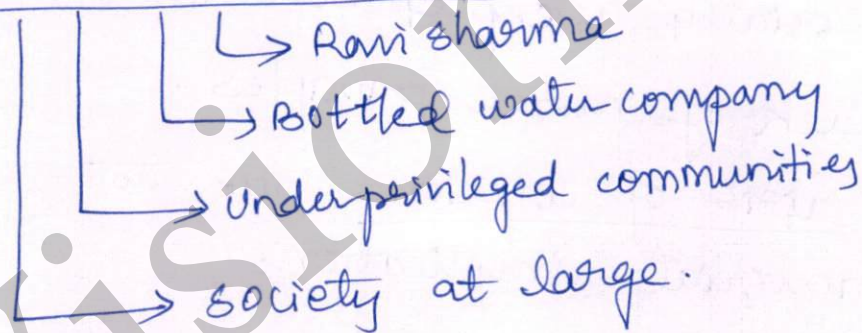 Ravi sharma
Bottled water company
underprivileged communities
society at large.